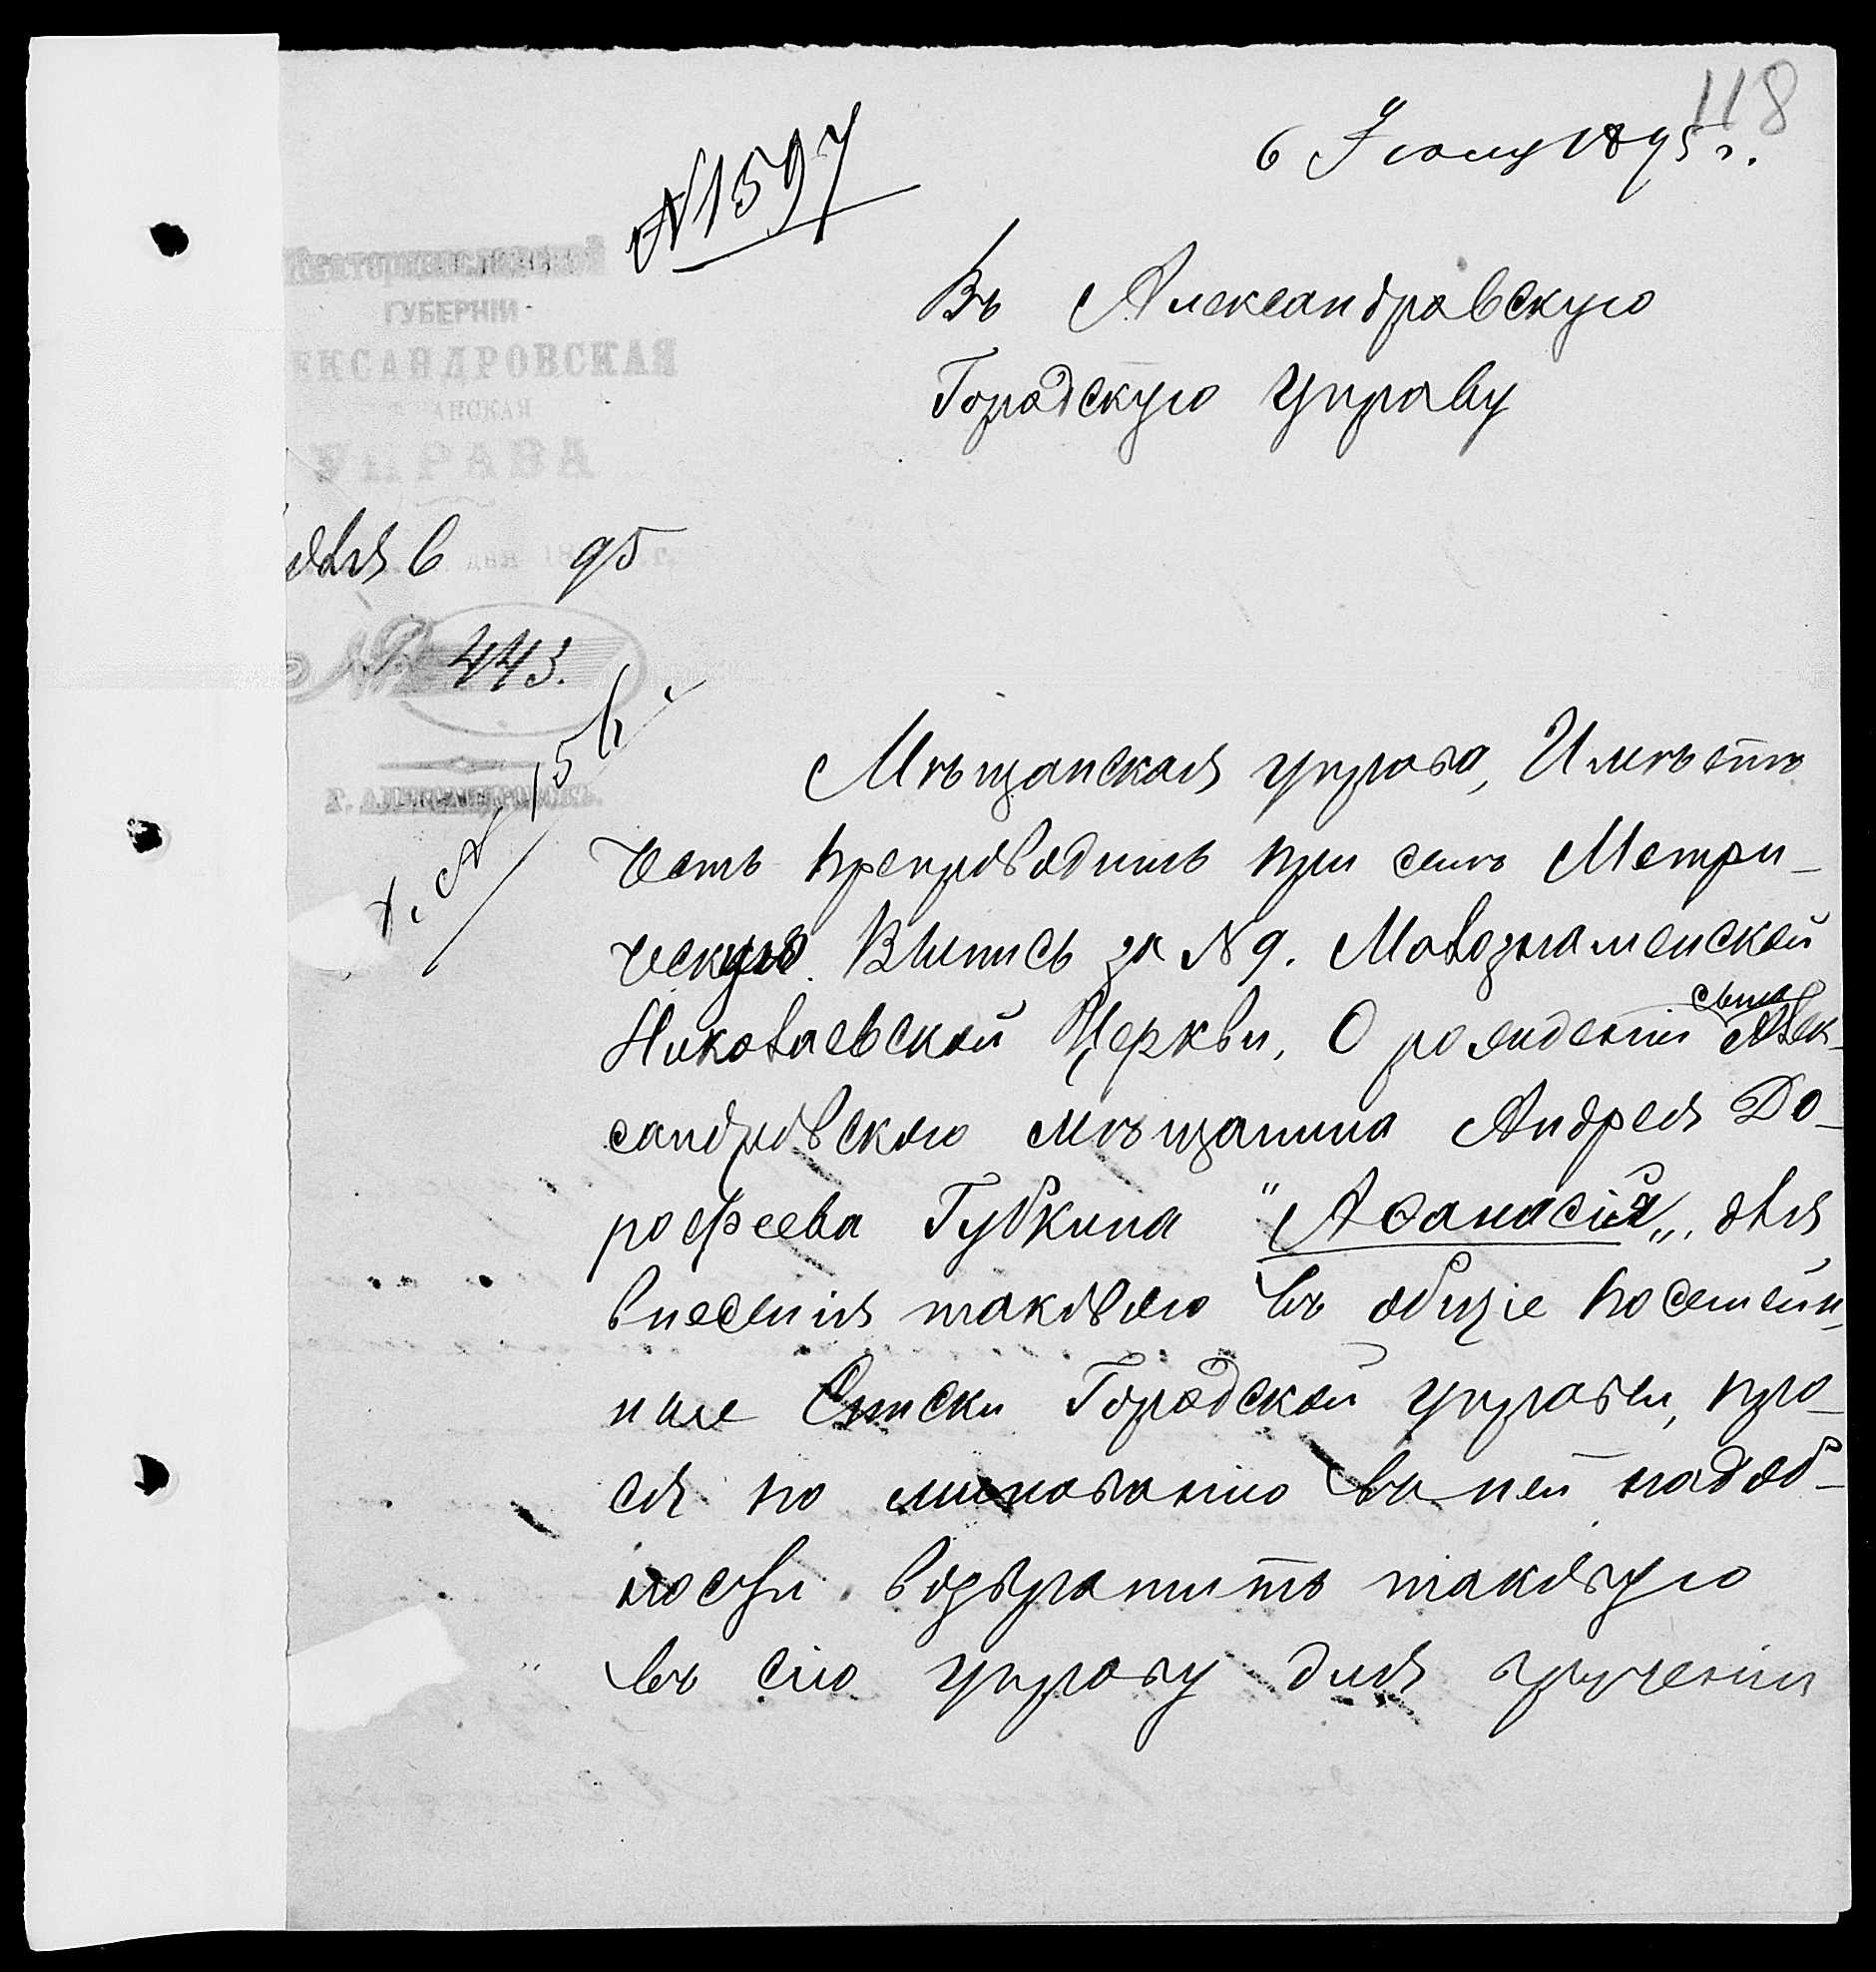 118
6 Іюля 1895 г.
№ 1597
Екатеринославской
ГУБЕРНІИ
ЕКСАНДРОВСКАЯ
АНСКАЯ
УПРАВА
Въ Александровскую
Городскую Управу
6 дня 1895 г.
№ 443.
Г. АЛЕКСАНДРОВСКЪ.
Мѣщанская управа, Имѣетъ
честь препроводить при семъ Метри-
ческую Выпись за № 9. Мовознаменской
Николаевской Церкви, О рожденіи сына Алек-
сандровскаго мѣщанина Андрея До-
рофеева Губкина "Аѳанасія„, для
внесенія таковаго въ общіе посемейн-
ные Списки Городской управы, про-
ся по минованію въ ней надоб-
ности возвратить таковую
въ сію управу для врученія